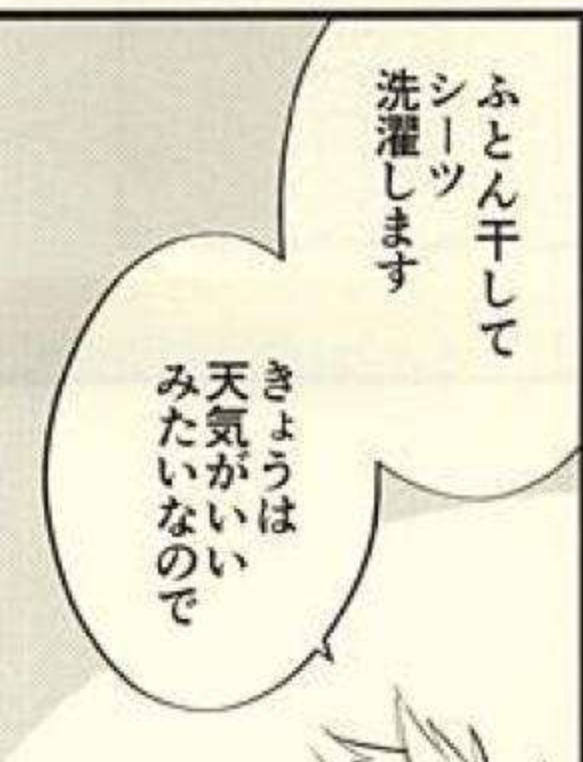 ふとん干して
シーツ
洗濯します
きょうは
天気がいい
みたいなので